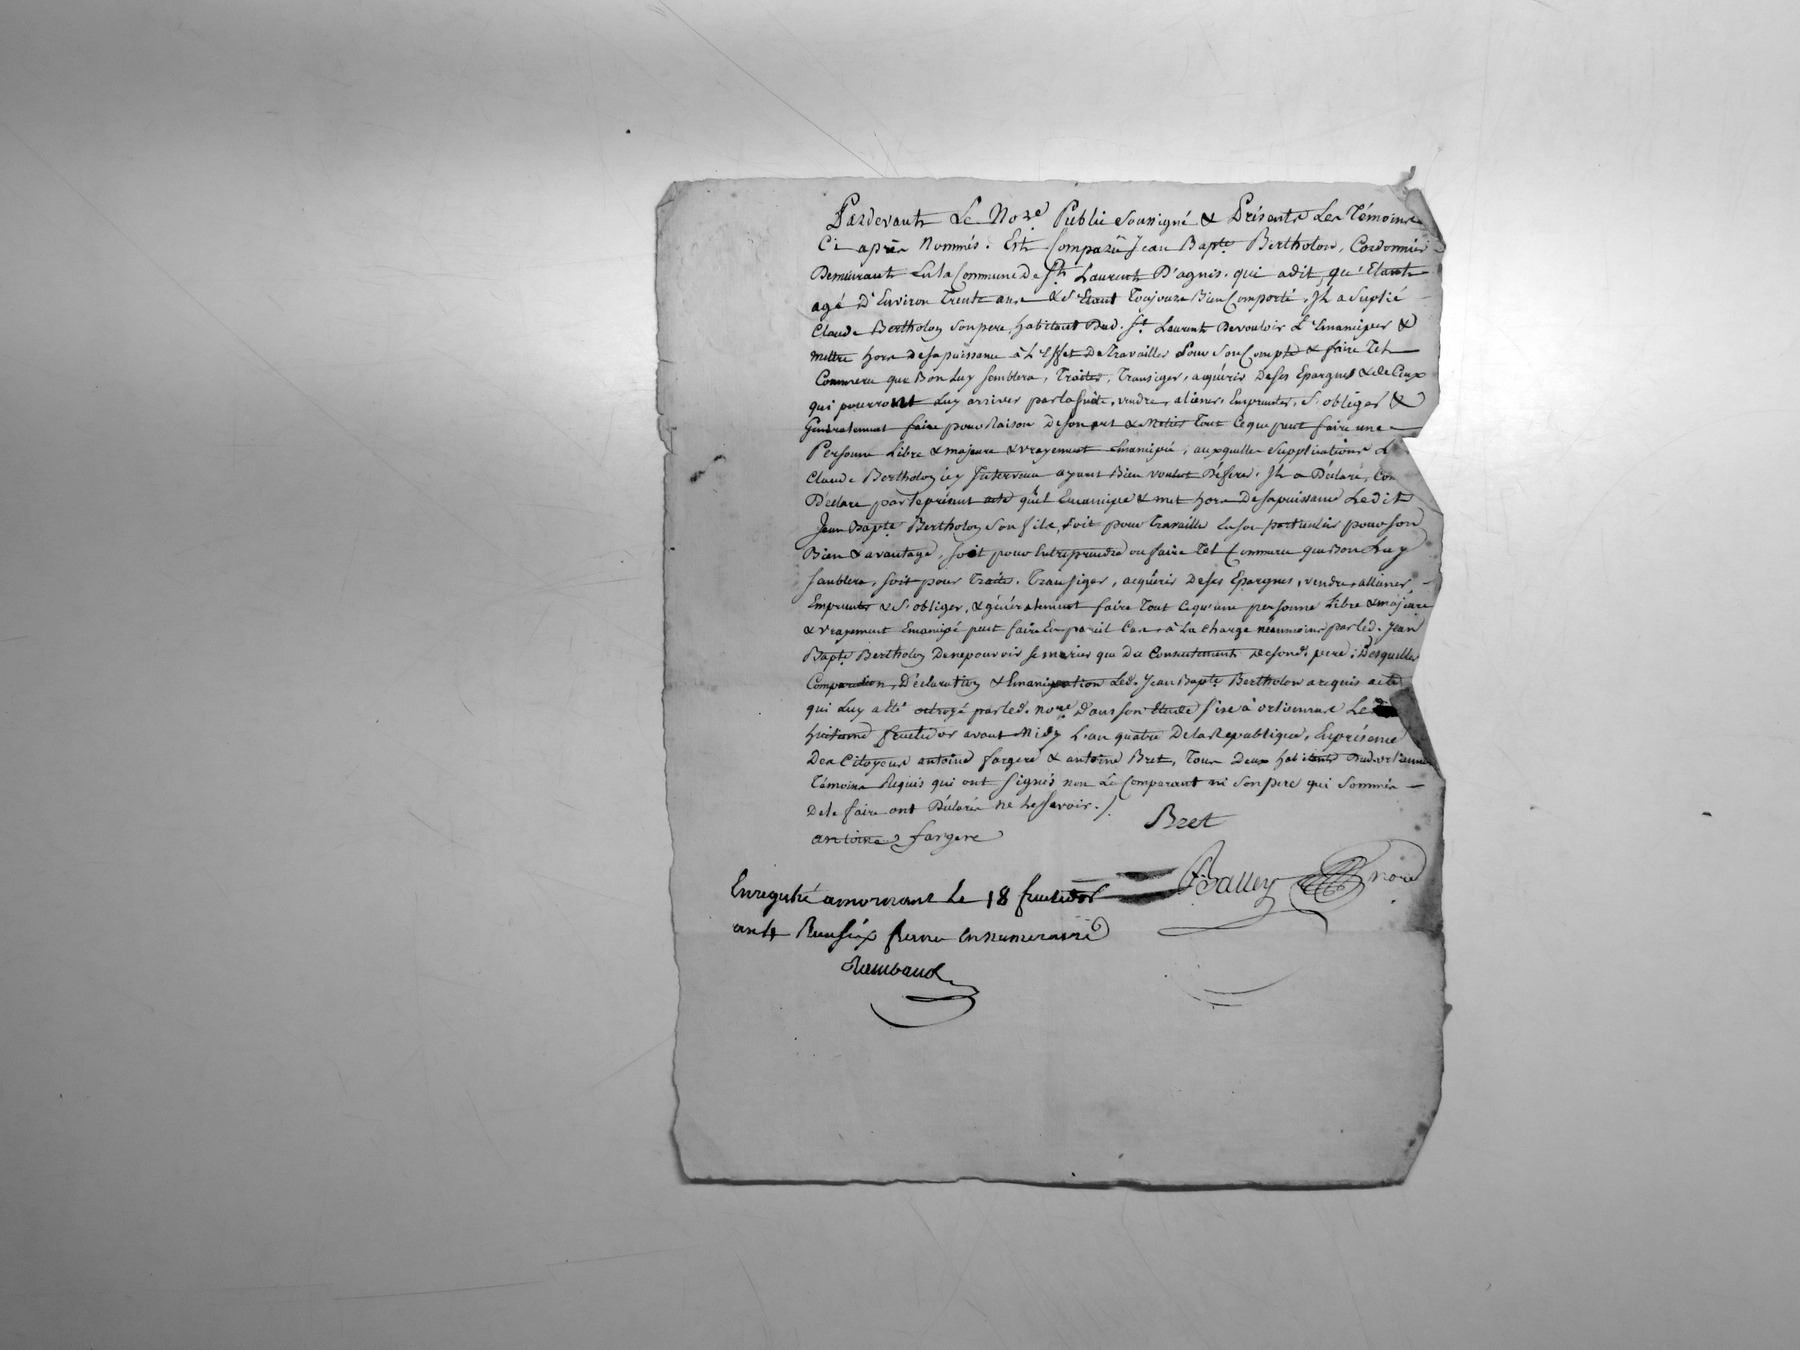 Pardevant Le No.re Public Soussigné & Présents Les Témoins
Ci après Nommés. Est Comparu Jean Bapte. Bertholon, Cordonnier
Demeurant En la Commune de St. Laurent D'agnis. qui adit qu'Etant
agé D'Environ Trente ans & s'Etant Toujours Bien Comporté, Il a Suplié
Claude Bertholon Son pere, habitant Dud. St. Laurent Devouloir L'Emanciper &
Mettre hors desa puissance à L'Effet De Travailler Pour Son Compte & faire Tel
Commerce que Bon Luy Semblera, Traiter, Transiger, acquérir De ses Epargnes & de Ceux
qui pourront Luy arriver parlasuite, vendre, aliener, Emprunter, S'obliger &
Généralement faire pour Raison De son art & Metier Tout Ceque peut faire une
Personne Libre & majeure & vrayement Emancipée, auxquelles Supplications Led.
Claude Bertholon icy Intervenu ayant Bien voulut Déferer, Il a Déclaré, Con
Déclare par le présent acte qu'il Emancipe & met hors Desapuissance Ledit
Jean Bapte. Bertholon Son fils, Soit pour Travailler En son particulier pour son
Bien & avantage, Soit pour Entreprendre ou faire Tel Commerce que Bon Luy
Semblera, Soit pour Traiter, Transiger, acquérir Deses Epargnes, vendre, alliener
Emprunter & S'obliger, & généralement faire Tout Cequ'une personne Libre & majeure
& vrayement Emancipé peut faire En pareil Cas, à La Charge néanmoins par led. Jean
Bapte. Bertholon Denepouvoir Semarier que Du Consentement Desond. pere; Desquelles
Comparution, Déclaration & Emancipation Led. Jean Bapte. Bertholon arequis acte
qui Luy a Eté octroyé parled. nore. Dans son Etude Sise à orlienas Le
huitieme fructidor avant Midy L'an quatre Dela Republique, En présence
Des Citoyens antoine fargere & antoine Bret, Tous Deux habitants Dud. orlienas
Témoins Requis qui ont Signés non Le Comparant ni Son pere qui Sommés
de le faire ont Déclarés ne Le Savoir. /.
antoine fargere
Bret
Balley nore
Enregistré amornant le 18 fructidor
an 4 Reçu Six francs en numeraire
Rambaud